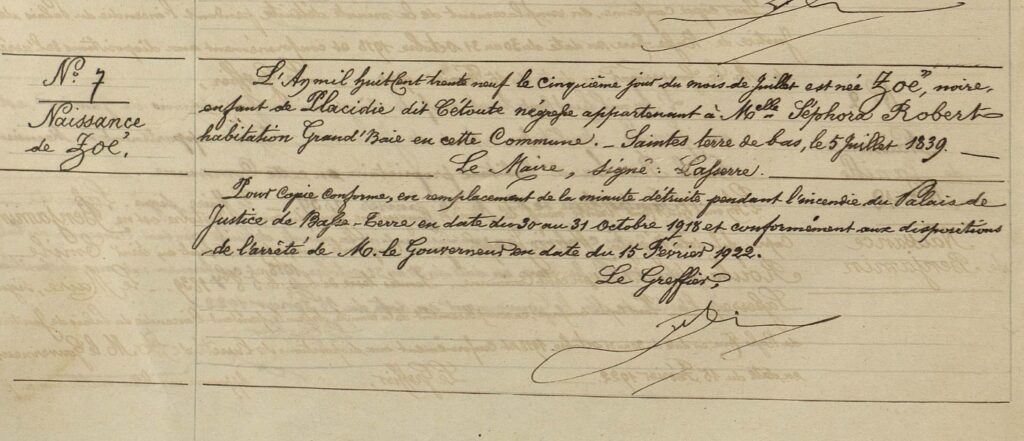 No. 7
Naissance
de Zoë.
L'An mil huit cent trente neuf le cinquième jour du mois de Juillet est née Zoë, noire,
enfant de Placidie dit Tétoute négresse appartenant à Melle Séphora Robert
habitation Grand'Baie en cette Commune. - Saintes terre de bas, le 5 Juillet 1839.
Le Maire, signé: Lasserre.
Pour copie conforme, en remplacement de la minute détruite pendant l'incendie du Palais de
Justice de Basse-Terre en date du 30 au 31 Octobre 1918 et conformément aux dispositions
de l'arrêté de M. le Gouverneur en date du 15 Février 1922.
Le Greffier,